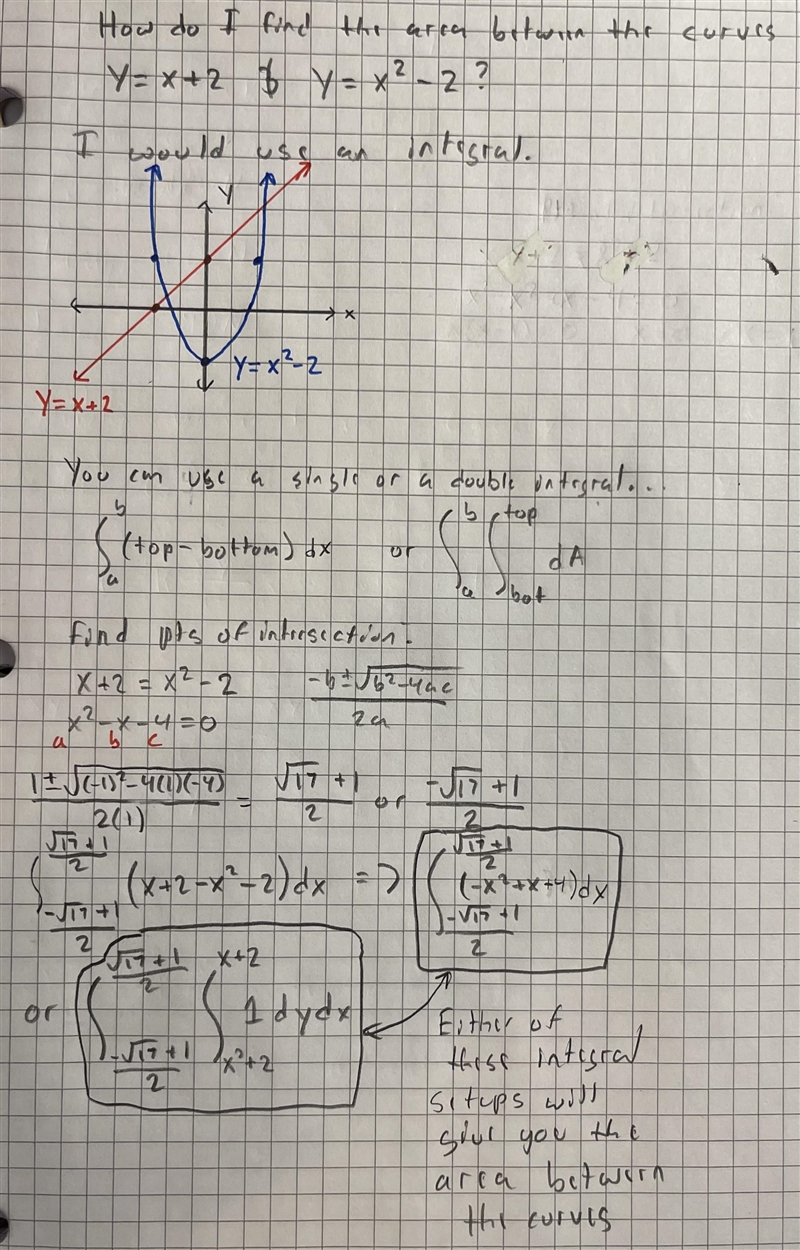 How do I find the area between the curves
y = x+2 & y = x² - 2 ?
I would use an integral.
y
x
y = x² - 2
y = x+2
You can use a single or a double integral...
∫_a^b (top - bottom) dx or ∫_a^b ∫_bot^top dA
Find pts of intersection:
x+2 = x² - 2 (-b ± √(b² - 4ac))/2a
x² - x - 4 = 0
a b c
(1 ± √((-1)² - 4(1)(-4)))/2(1) = (√17 + 1)/2 or (-√17 + 1)/2
∫_{(-√17+1)/2}^{(√17+1)/2} (x+2-x²-2) dx => ∫_{(-√17+1)/2}^{(√17+1)/2} (-x²+x+4) dx
or ∫_{(-√17+1)/2}^{(√17+1)/2} ∫_{x²+2}^{x+2} 1 dy dx
Either of
these integral
setups will
give you the
area between
the curves